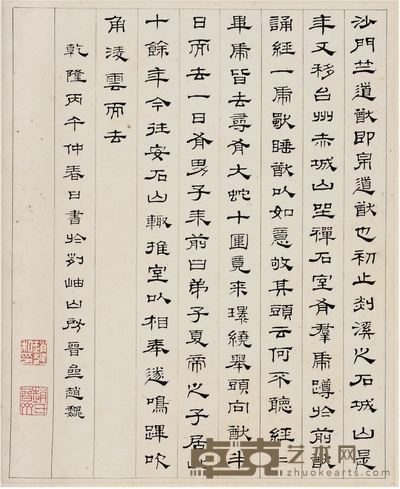 沙門竺道猷即帛道猷也初止剡溪之石城山是
年又移台州赤城山坐禪石室有羣虎蹲於前猷
誦經一虎獸睡猷以如意敂其頭云何不聽經一
畢虎皆去尋有大蛇十圍竟來環繞舉頭向猷半
日而去一日有男子来前曰弟子夏帝之子居此
十餘年今往安石山輙推室以相奉遂鳴鞞吹
角淩雲而去
乾隆丙午仲春日書於岫山趙魏
卓克艺术网
zhuokearts.com